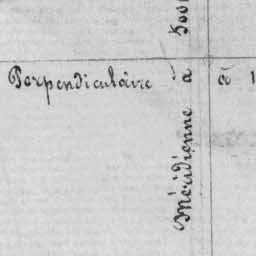 Perpendiculaire à 1
Méridienne à 500